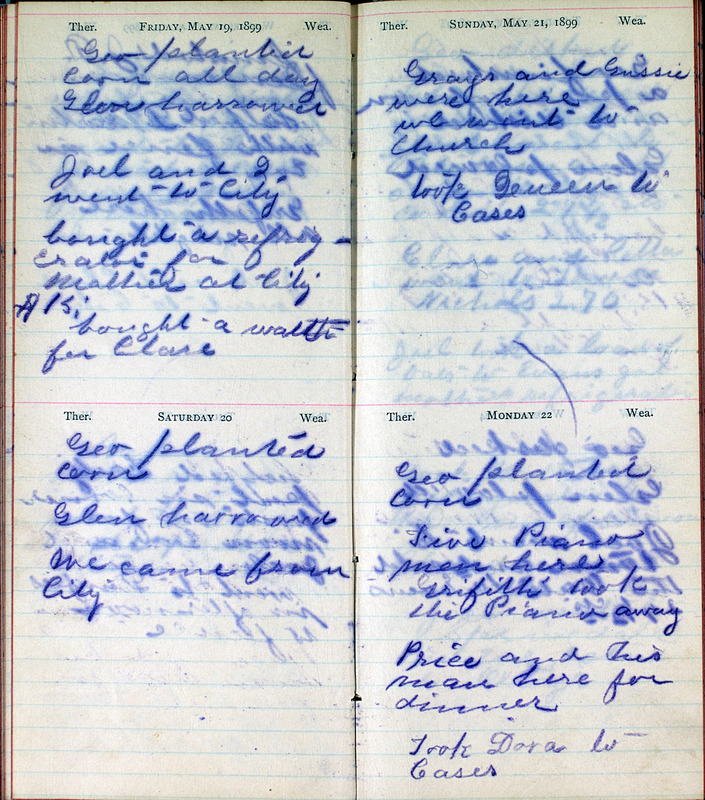 Ther. FRIDAY, MAY 19, 1899 Wea.
Geo planted
corn all day
Glen harrowed
Joel and I
went to City
bought a refrig-
erator for
Mattie at City
$15;
bought a
for Clare
Ther. SATURDAY 20 Wea.
Geo planted
corn
Glen harrowed
We came from
City
Ther. SUNDAY, MAY 21, 1899 Wea.
Grays and Gussie
were here
we went to
Church
took Queen to
Cases
Ther. MONDAY 22 Wea.
Geo planted
corn
Five Piano
men here
Griffith took
the Piano away
Price and his
man here for
dinner
Took Dora to
Cases